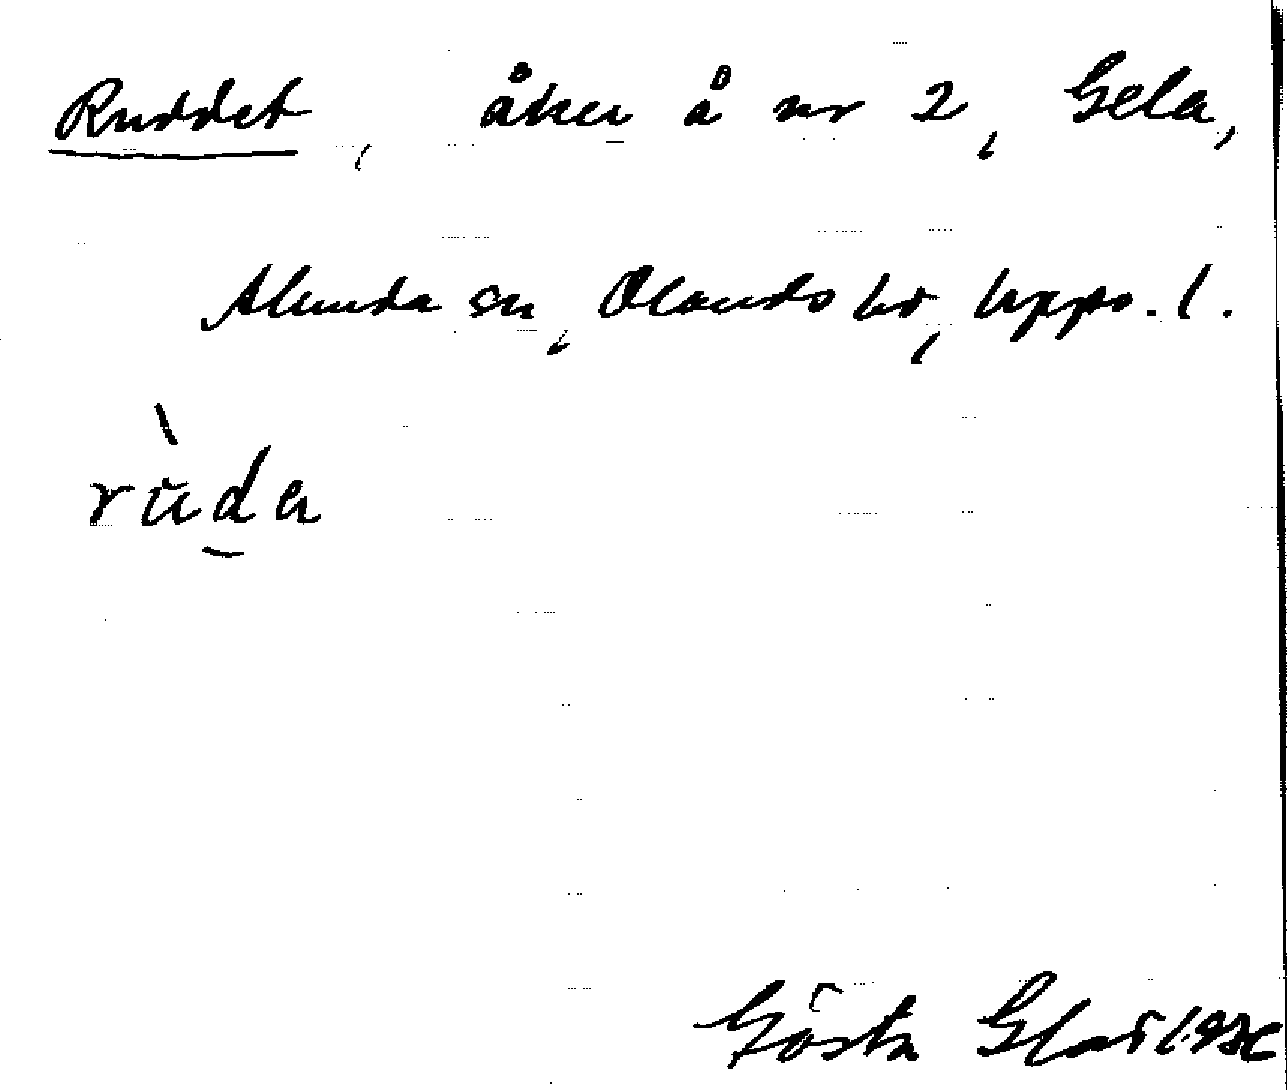 Ruddet, åker å nr 2, Gela,
Alunda sn, Olands hd, Upps. l.
rùda
Gösta